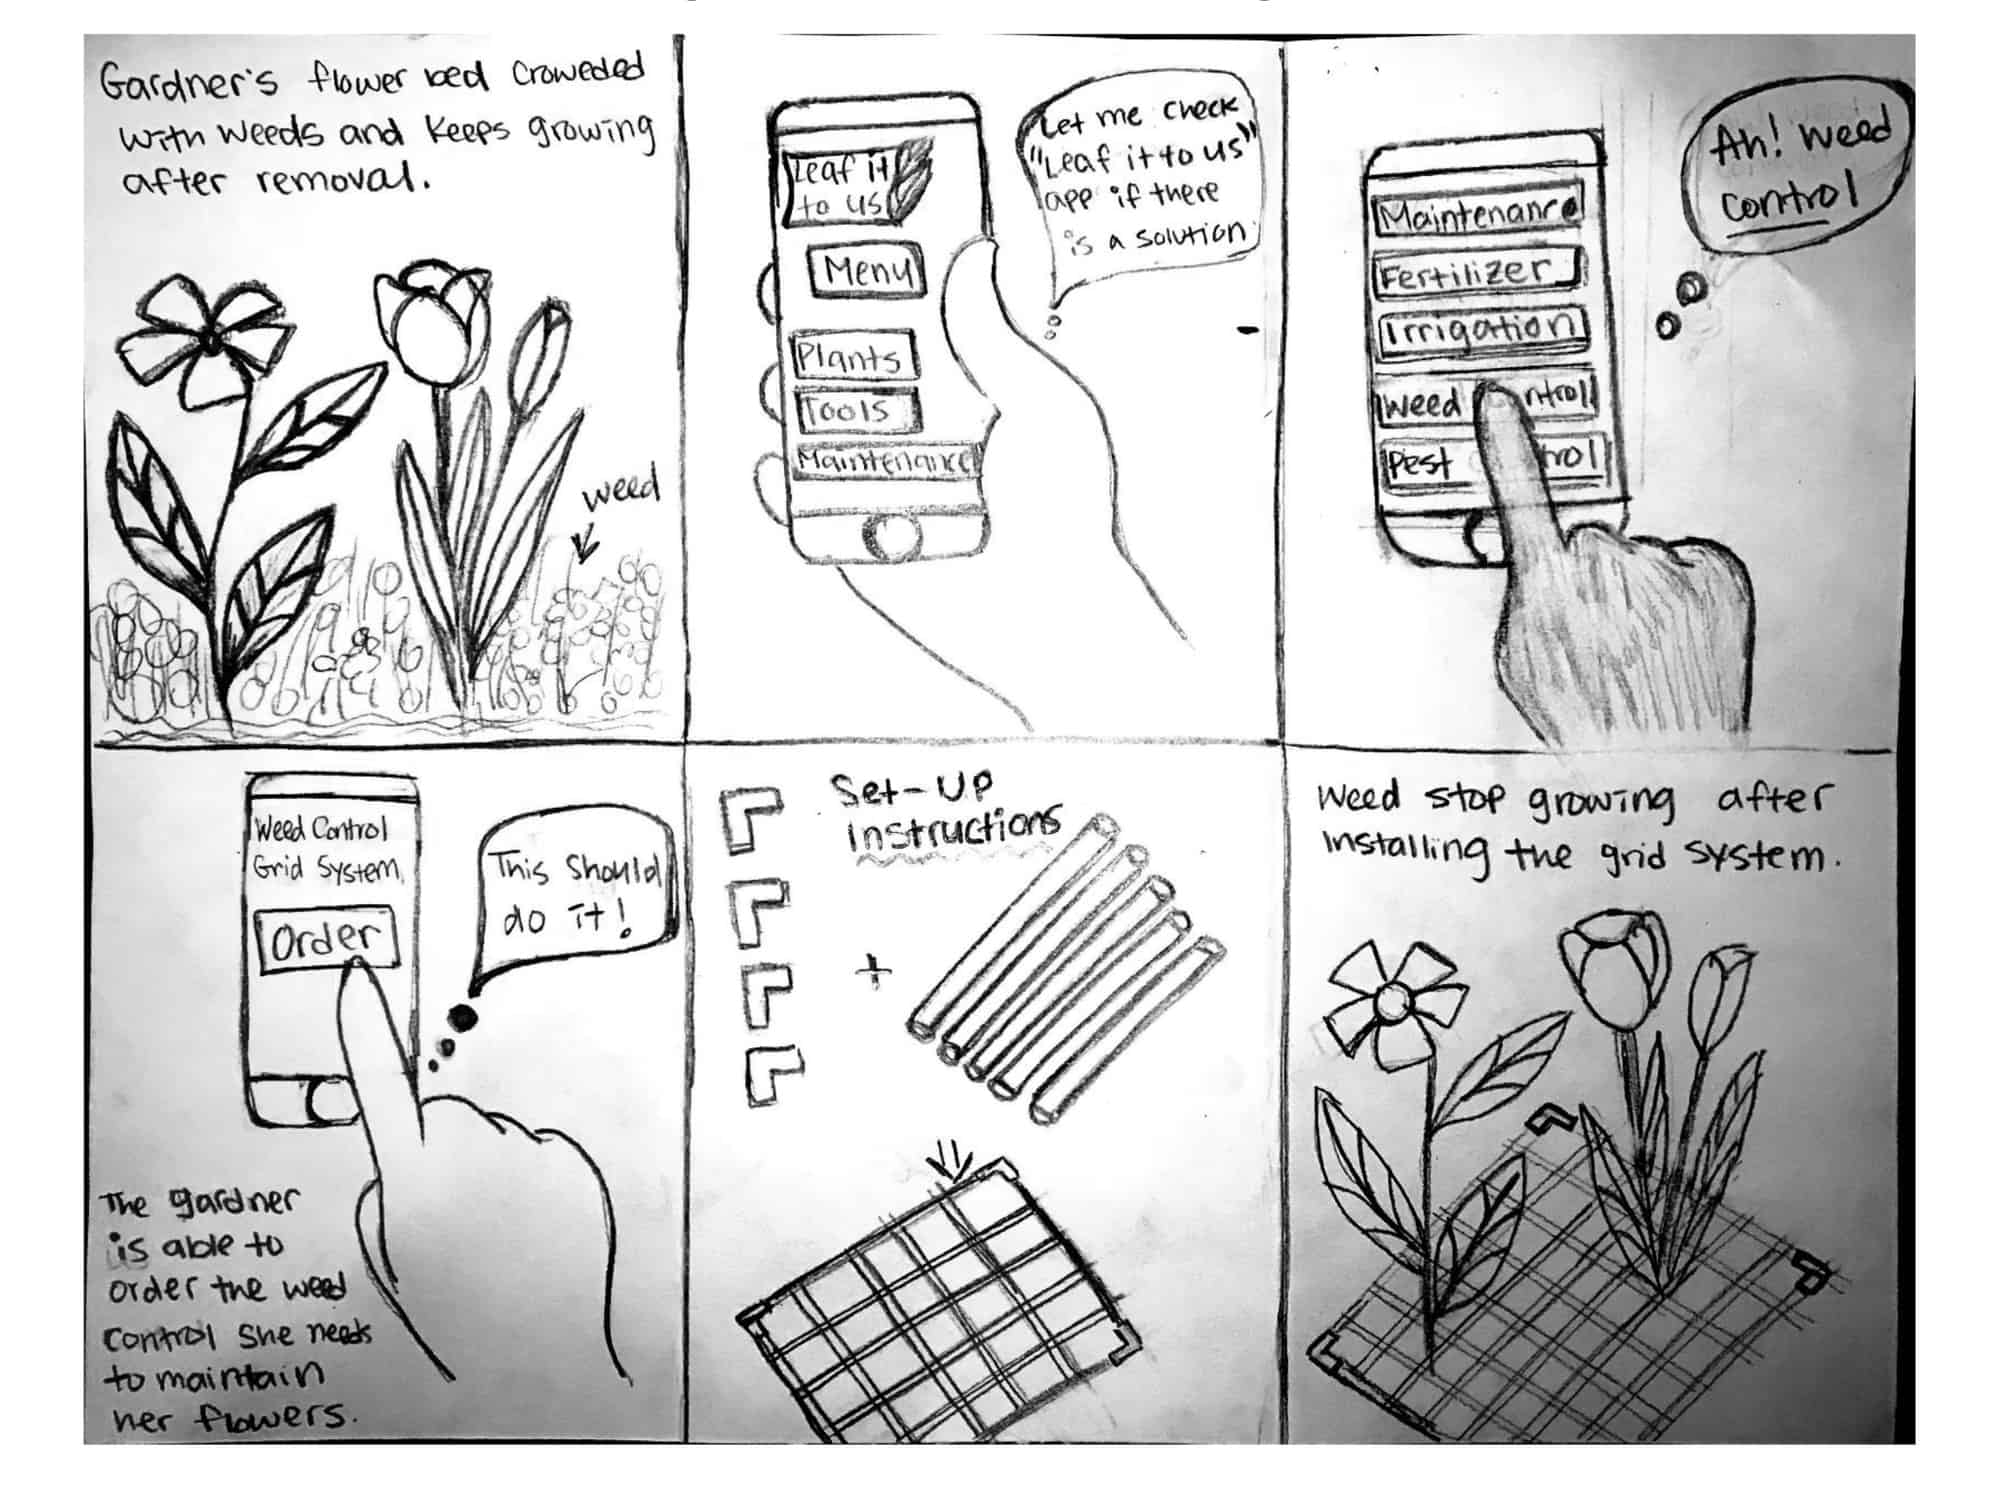 Gardner's flower bed croweded
with weeds and keeps growing
after removal.
weed
Leaf it
to us
Menu
Plants
Tools
Maintenance
Let me check
"Leaf it to us"
app if there
is a solution
Maintenance
Fertilizer
Irrigation
Weed ntrol
Pest trol
Ah! Weed
control
Weed Control
Grid System
Order
This should
do it!
The gardner
is able to
order the weed
control she needs
to maintain
her flowers.
Set-Up
Instructions
+
Weed stop growing after
installing the grid system.